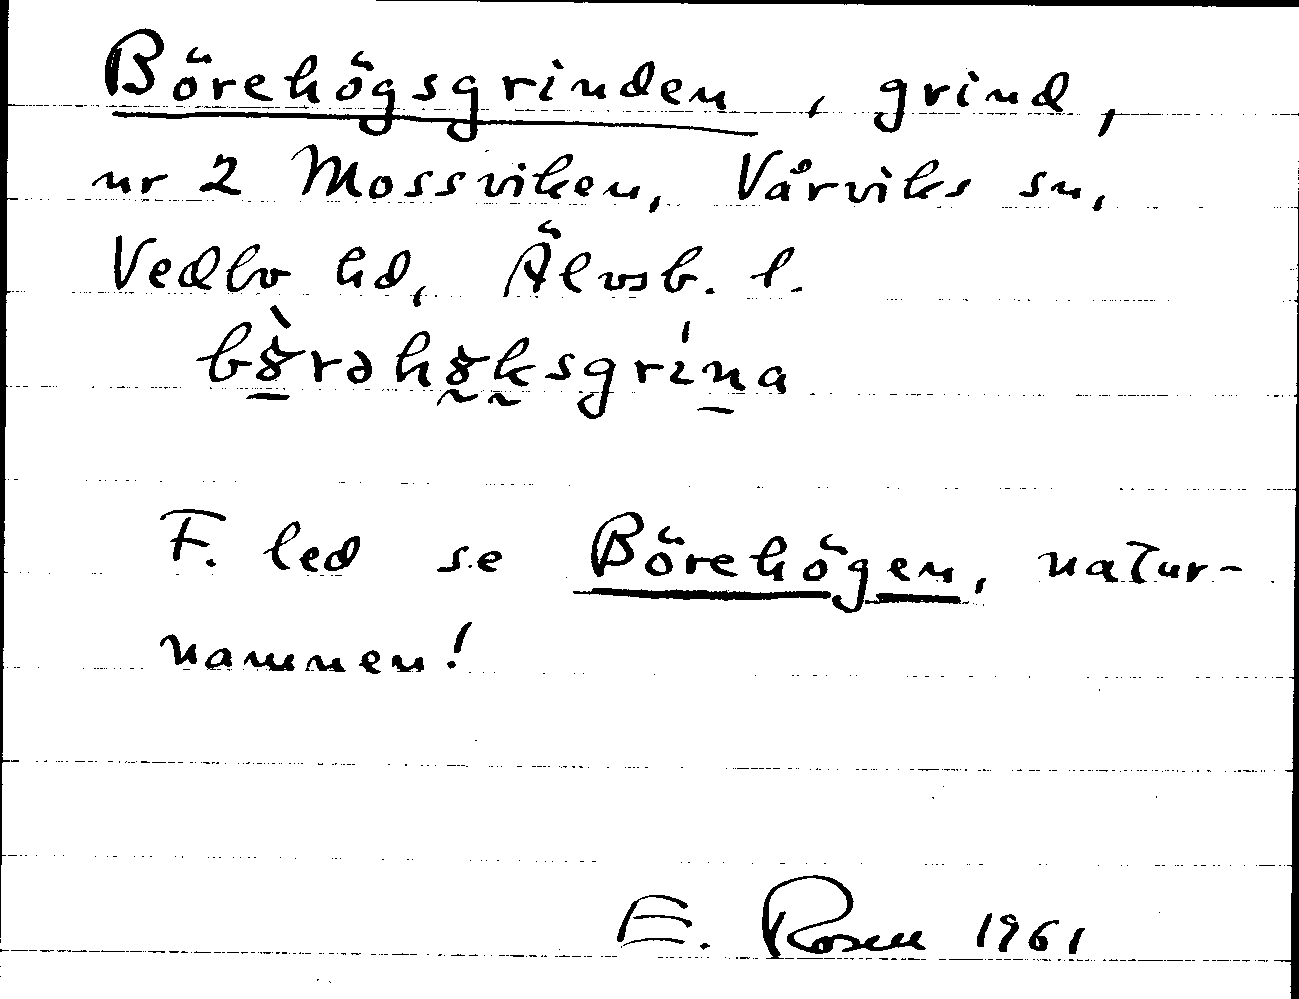 Börehögsgrinden, grind,
nr 2 Mossviken, Vårviks sn,
Vedbo hd, Älvsb. l.
bȣ̀rəhȣksgrína
F. led se Börehögen, natur-
namnen!
E. Rosen 1961